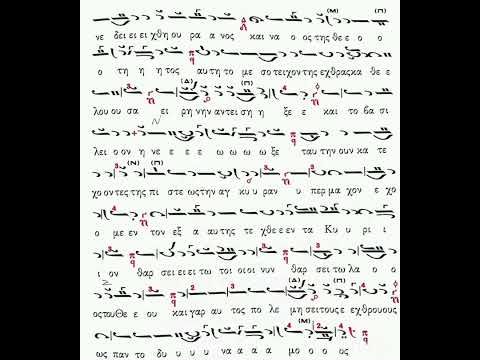 νε δει ει ει χθη ου ρα α νος και να ο ος της θε ε ο ο
ο τη η η τος αυ τη το με σο τει χον της εχ θρας κα θε ε
λου ου σα ει ρη νην αν τει ση η ξε ε και το βα σι
λει ο ον η νε ε ε ε ω ω ω ω ξε ταυ την ουν κα τε
χο ον τες της πι στε ως την αγ κυ υ ραν υ περ μα χον ε χο
ο με εν τον εξ α αυ της τε χθε εν τα Κυ υ ρι ι
ι ον θαρ σει ει ει τω τοι οι οι νυν θαρ σει τω λα ο ο
ος του Θε ε ου και γαρ αυ τος πο λε μη σει τους ε χθρου ους
ως παν το δυ υ υ υ να α α α μο ο ο ος